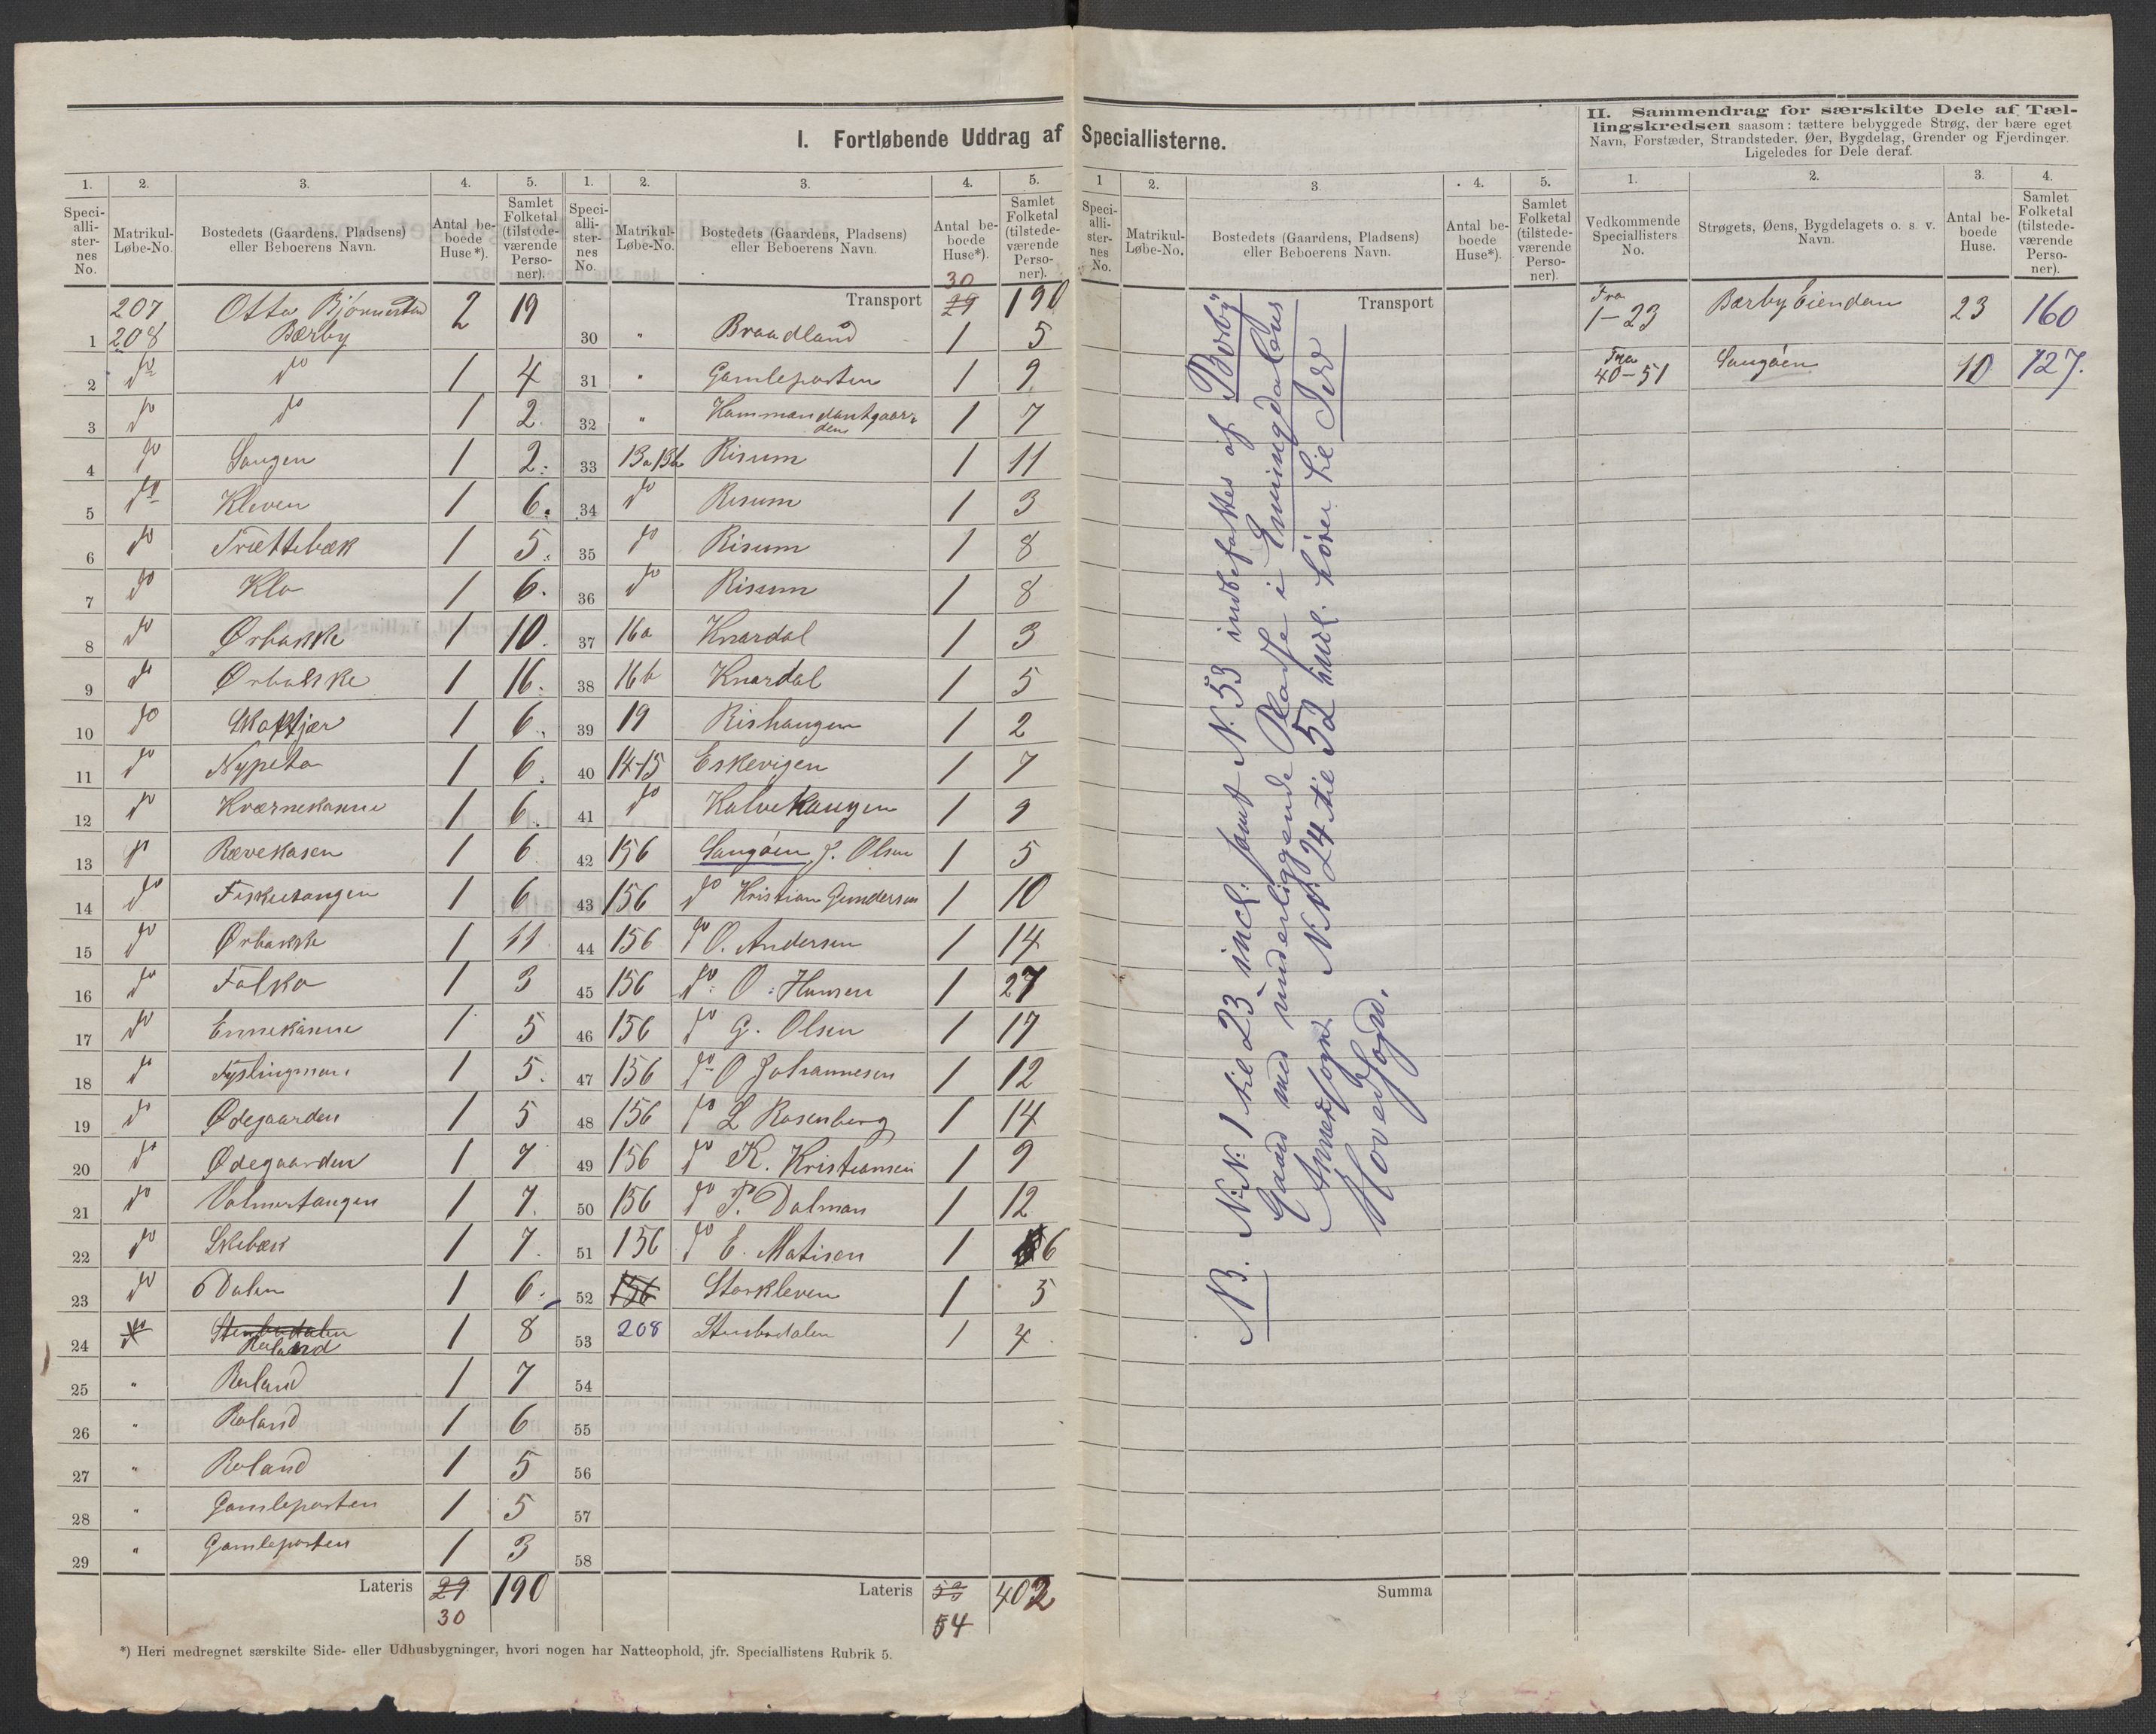 I. Fortløbende Uddrag af Speciallisterne.
II. Sammendrag for særskilte Dele af Tæl-
lingskredsen saasom: tættere bebyggede Strøg, der bære eget
Navn, Forstæder, Strandsteder, Øer, Bygdelag, Grender og Fjerdinger.
Ligeledes for Dele deraf.
1. 2. 3. 4. 5.
Speciallisternes No. Matrikul-Løbe-No. Bostedets (Gaardens, Pladsens) eller Beboerens Navn. Antal beboede Huse*). Samlet Folketal (tilstedeværende Personer).
207
1 208 Otto Bjørnestad Bærby 2 19
2 do do 1 4
3 do do 1 2
4 do Laugen 1 2
5 do Kleven 1 6
6 do Trættebæk 1 5
7 do Klo 1 6
8 do Ørbakke 1 10
9 do Ørbakke 1 16
10 do 1 6
11 do Nypeta 1 6
12 do Kværnekasene 1 6
13 do Rævekasen 1 6
14 do Fisketangen 1 6
15 do Ørbakke 1 11
16 do Falka 1 3
17 do Ennekasene 1 5
18 do 1 5
19 do Ødegaarden 1 5
20 do Ødegaarden 1 7
21 do Valmertangen 1 7
22 do Skebæk 1 7
23 do Dalen 1 6
24 do Stenbudalen Roland 1 8
25 " Roland 1 7
26 " Roland 1 6
27 " Roland 1 5
28 " Gamleporten 1 5
29 " Gamleporten 1 3
Lateris 29 30 190
1. 2. 3. 4. 5.
Speciallisternes No. Matrikul-Løbe-No. Bostedets (Gaardens, Pladsens) eller Beboerens Navn. Antal beboede Huse*). Samlet Folketal (tilstedeværende Personer).
Transport 30 29 190
30 " Braadland 1 5
31 " Gamleporten 1 9
32 " Kommandantgaarden 1 7
33 13a 13b Risum 1 11
34 do Risum 1 3
35 do Risum 1 8
36 do Risum 1 8
37 16a Knardal 1 3
38 16b Knardal 1 5
39 19 Rishaugen 1 2
40 14-15 Eskevigen 1 7
41 do Kalvehaugen 1 9
42 156 Saugøen J. Olsen 1 5
43 156 do Kristian Gundersen 1 10
44 156 do O. Andersen 1 14
45 156 do O. Hansen 1 27
46 156 do G. Olsen 1 17
47 156 do O Johannesen 1 12
48 156 do L Rosenberg 1 14
49 156 do K. Kristiansen 1 9
50 156 do P. Dalman 1 12
51 156 do E. Matisen 1 6
52 156 Storkleven 1 5
53 208 Stenbudalen 1 4
54
55
56
57
58
Lateris 53 54 402
*) Heri medregnet særskilte Side- eller Udhusbygninger, hvori nogen har Natteophold, jfr. Speciallistens Rubrik 5.
1 2. 3. 4. 5.
Speciallisternes No. Matrikul-Løbe-No. Bostedets (Gaardens, Pladsens) eller Beboerens Navn. Antal beboede Huse*). Samlet Folketal (tilstedeværende Personer).
Transport
NB. N.N. 1 til 23 incl. samt N. 53 indbefattes af "Børby"
Gaard med underliggende Pladse i Enningdalens
Annexsogn. N.N. 24 til 52 incl. hører til Idd
Hovedsogn.
Summa
1. 2. 3. 4.
Vedkommende Speciallisters No. Strøgets, Øens, Bygdelagets o. s. v. Navn. Antal beboede Huse. Samlet Folketal (tilstedeværende Personer).
Fra 1-23 Bærby Eiendom 23 160
Fra 40-51 Saugøen 10 127.